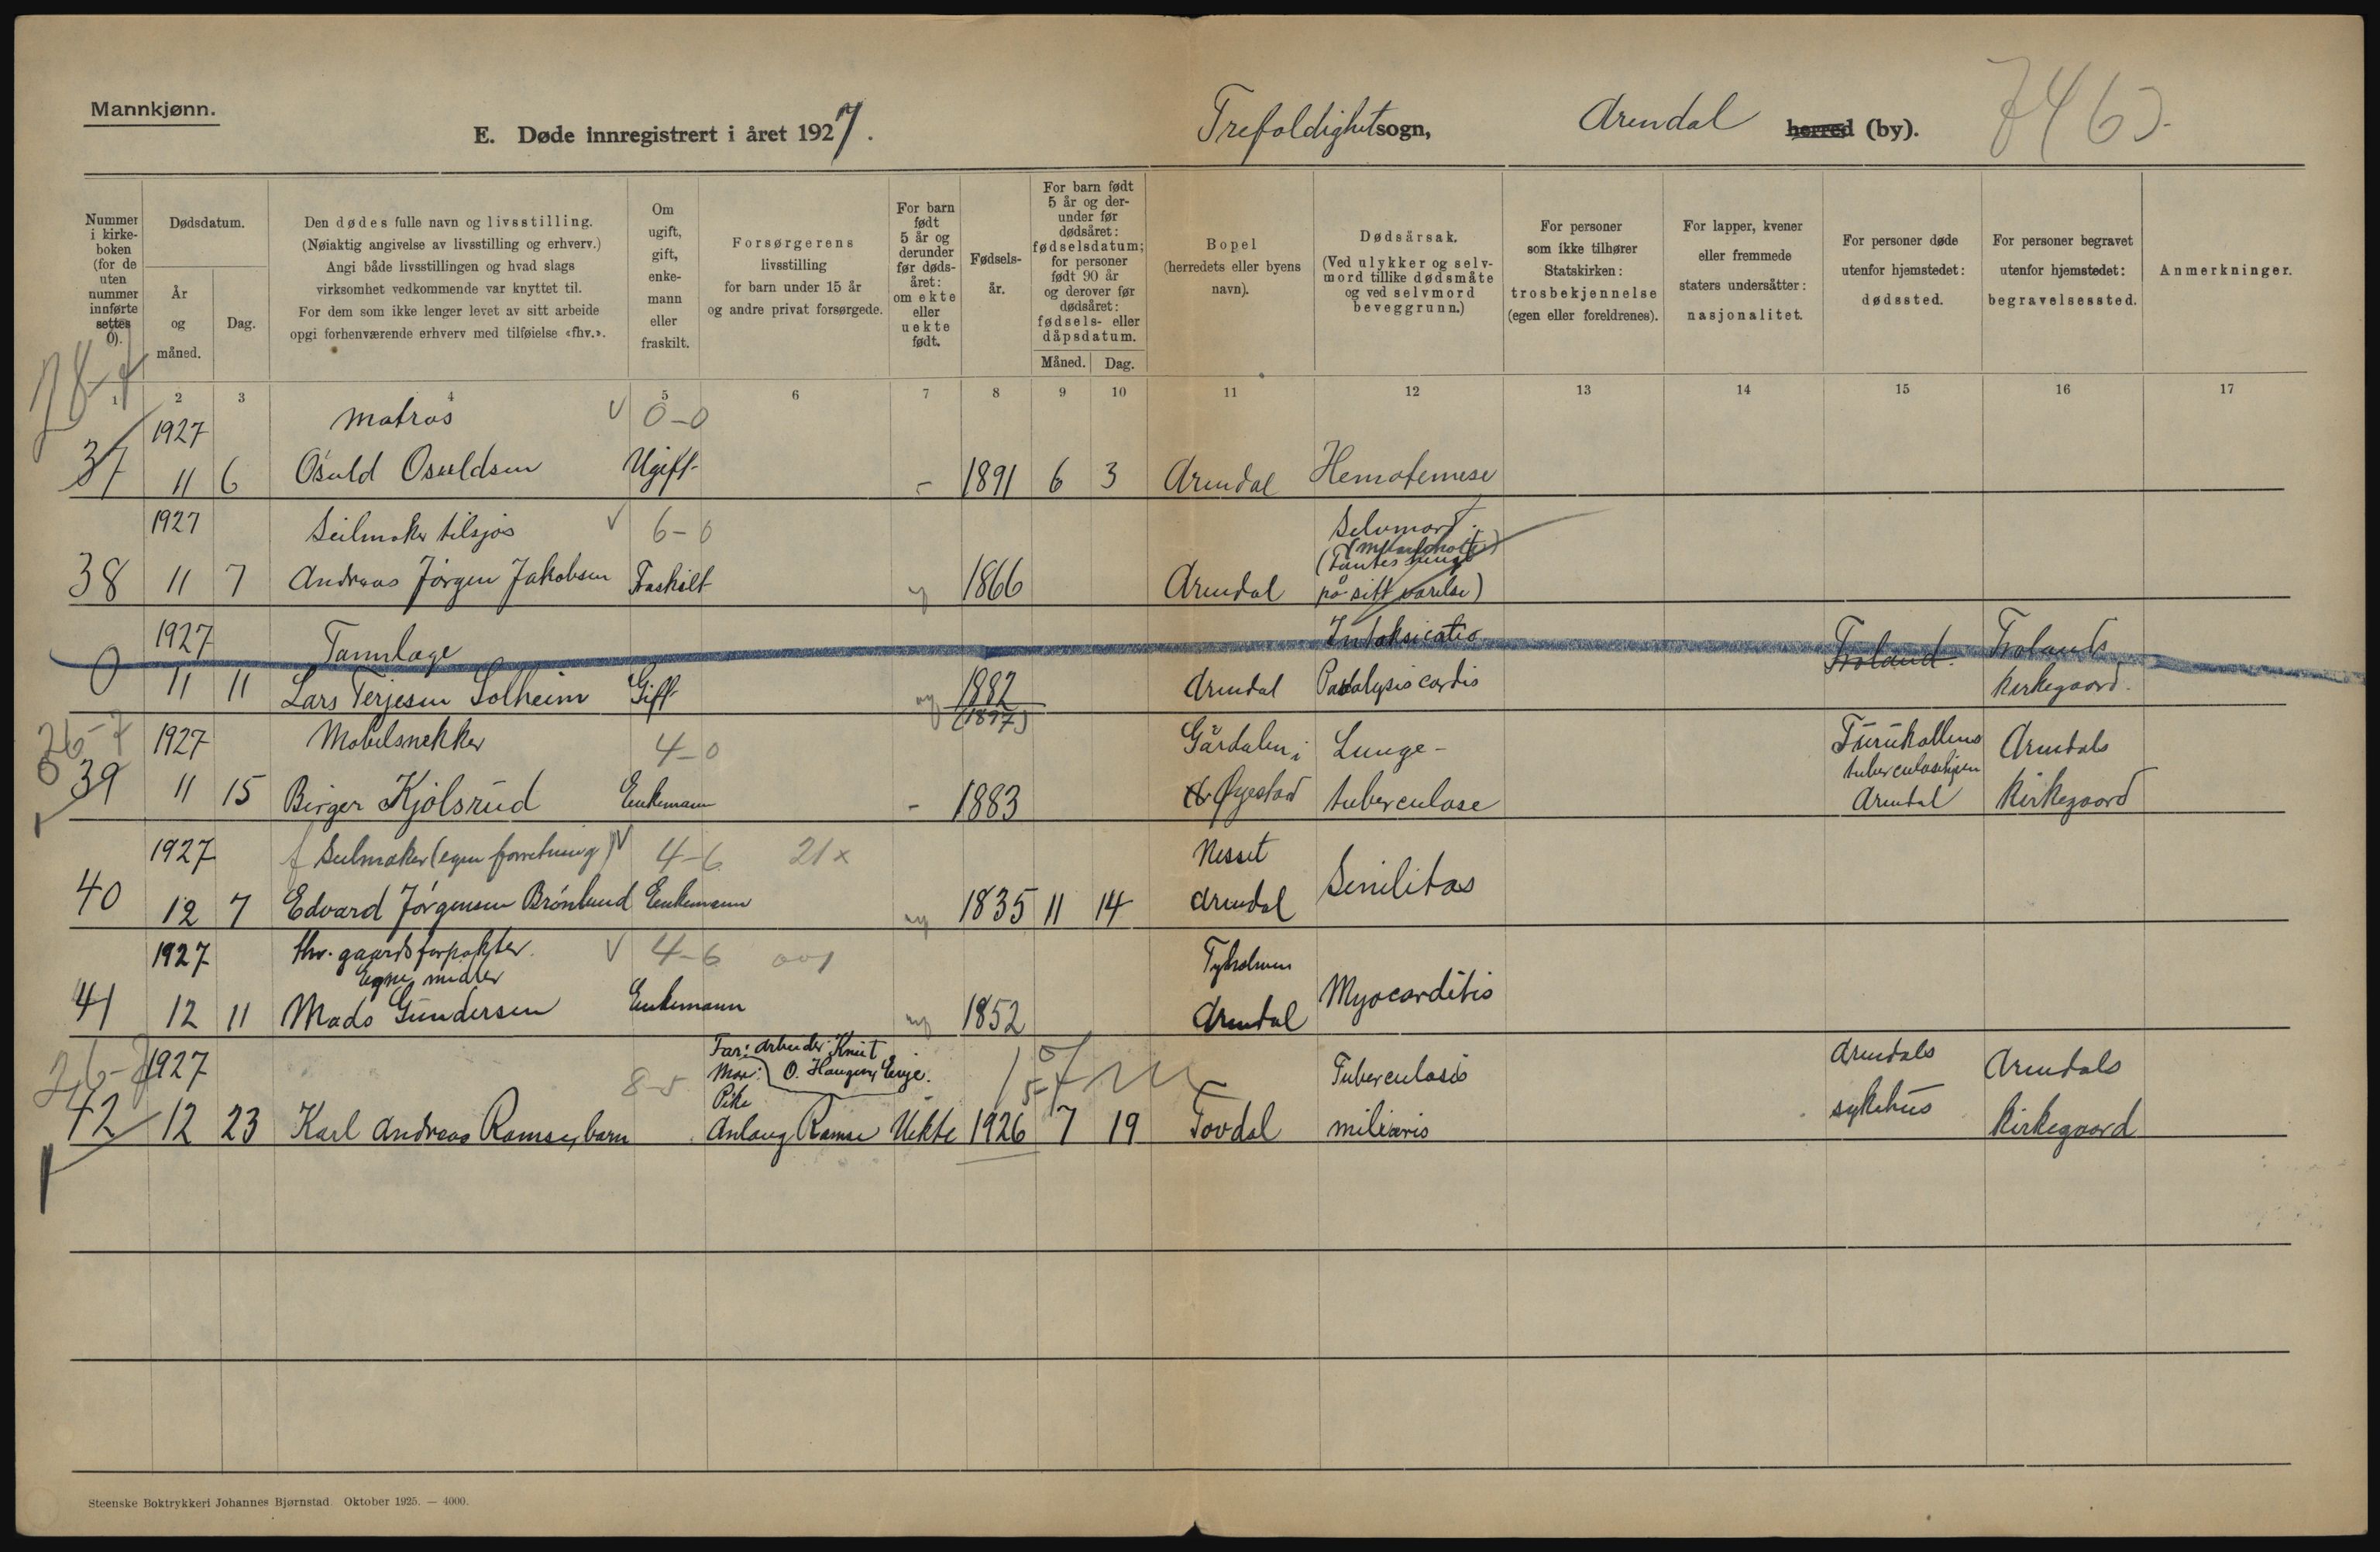 Mannkjønn.
E. Døde innregistrert i året 1927.
Trefoldighetsogn,
Arendal herred (by).
Nummer i kirke-boken (for de uten nummer innførte settes 0).
Dødsdatum.
År og måned.
Dag.
Den dødes fulle navn og livsstilling.
(Nøiaktig angivelse av livsstilling og erhverv.)
Angi både livsstillingen og hvad slags
virksomhet vedkommende var knyttet til.
For dem som ikke lenger levet av sitt arbeide
opgi forhenværende erhverv med tilføielse «fhv.».
Om ugift, gift, enke-mann eller fraskilt.
Forsørgerens
livsstilling
for barn under 15 år
og andre privat forsørgede.
For barn født 5 år og derunder før døds-året: om ekte eller uekte født.
Fødsels-år.
For barn født 5 år og der-under før dødsåret: fødselsdatum; for personer født 90 år og derover før dødsåret: fødsels- eller dåpsdatum.
Måned.
Dag.
Bopel
(herredets eller byens
navn).
Dødsårsak.
(Ved ulykker og selv-
mord tillike dødsmåte
og ved selvmord
beveggrunn.)
For personer
som ikke tilhører
Statskirken:
trosbekjennelse
(egen eller foreldrenes).
For lapper, kvener
eller fremmede
staters undersåtter:
nasjonalitet.
For personer døde
utenfor hjemstedet:
dødssted.
For personer begravet
utenfor hjemstedet:
begravelsessted.
Anmerkninger.
1 2 3 4 5 6 7 8 9 10 11 12 13 14 15 16 17
1927 Matros 0-0
37 11 6 Osuld Osuldsen Ugift - 1891 6 3 Arendal Hematemese
1927 Seilmaker tilsjøs 6-0 Selvmord.
(Fantes hengt
38 11 7 Andreas Jørgen Jakobsen Fraskilt 1866 Arendal på sitt værelse)
1927 Tannlæge Intoksicatio Froland. Frolands
0 11 11 Lars Terjesen Solheim Gift 1882 Arendal Paralysis cordis kirkegaard.
(1897)
26-7 1927 Møbelsnekker 4-0 Gårdalen i Lunge- Furukollens Arendals
tuberculosehjem
39 11 15 Birger Kjølsrud Enkemann - 1883 Øyestad tuberculose Arendal Kirkegaard
1927 f Seilmaker (egen forretning) 4-6 21x Nesset
40 12 7 Edvard Jørgensen Brønlund Enkemann 1835 11 14 Arendal Senilitas
1927 fhv. gaardsforpakter. 4-6 001 Tyholmen
Egne midler
41 12 11 Mads Gundersen Enkemann 1852 Arendal Myocarditis
26-7 1927 Far: Arbeider Knut Tuberculosis Arendals Arendals
8-5 Mor: O. Haugen, Evje.
Pike
42 12 23 Karl Andreas Ramse, barn Anlaug Ramse Uekte 1926 7 19 Tovdal miliaris sykehus Kirkegaard
Steenske Boktrykkeri Johannes Bjørnstad. Oktober 1925. — 4000.